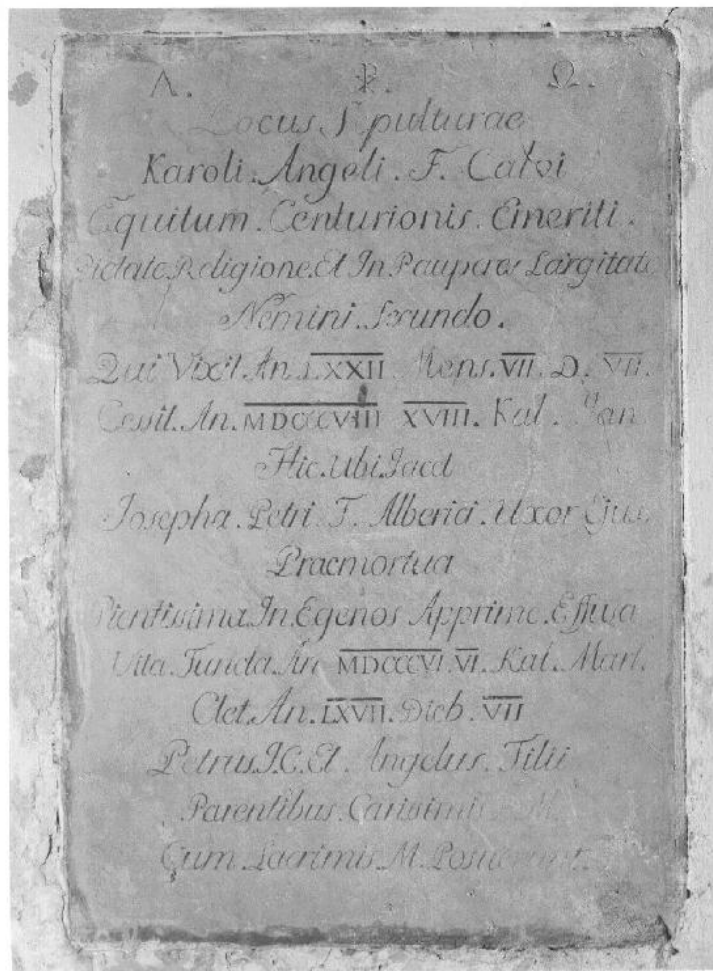 Α. ☧. Ω.
Locus Sepulturae
Karoli. Angeli. F. Calvi
Equitum. Centurionis. Emeriti.
Pietate. Religione. Et In. Pauperes Largitate
Nemini. Secundo.
Qui Vixit. An. LXXII. Mens. VII. D. VII.
Cessit. An. MDCCCVIII XVIII. Kal. Jan
Hic. Ubi. Jacet
Josepha. Petri. F. Alberici. Uxor Ejus.
Praemortua
Pientissima. In. Egenos Apprime. Effusa
Vita. Functa. An MDCCCVI. VI. Kal. Mart.
Aet. An. LXVII. Dieb. VII
Petrus. J. C. Et. Angelus. Filii
Parentibus. Carisimis M.
Cum. Lacrimis. M. Posuerunt.